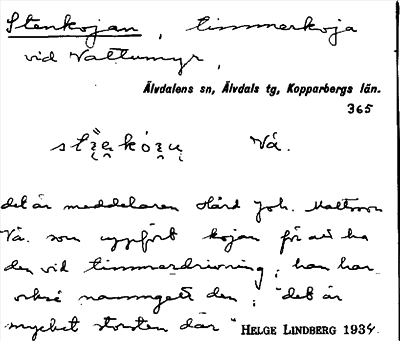 Stenkojan, timmerkoja
vid Vattumyr,
Älvdalens sn, Älvdals tg, Kopparbergs län.
365
Vå.
det är meddelaren Hård Joh. Mattsson
Vå. som uppfört kojan för att ha
den vid timmerdrivning; han har
också namngett den; "det är
mycket storsten där" HELGE LINDBERG 1934